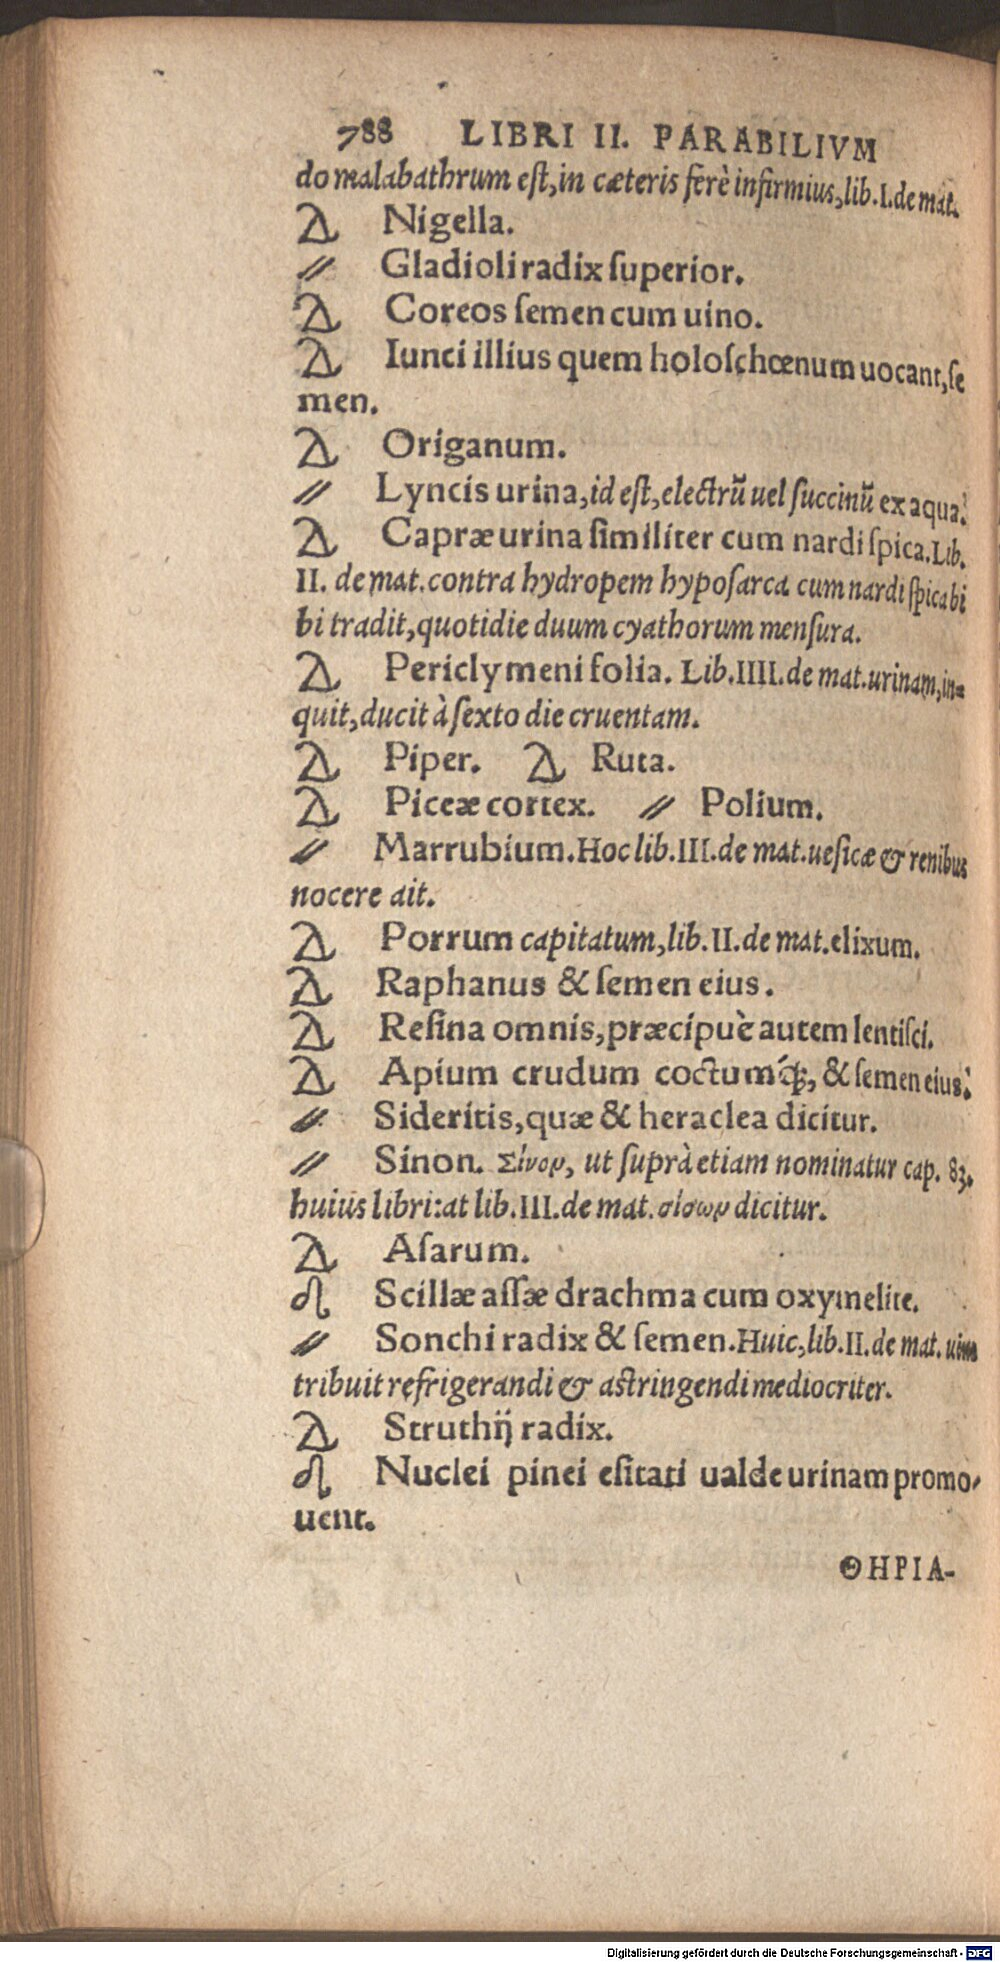 788 LIBRI II. PARABILIVM
do malabathrum eſt, in cæteris ferè infirmius, lib. I. de mat.
Nigella.
Gladioli radix ſuperior.
Coreos ſemen cum uino.
Iunci illius quem holoſchœnum uocant, ſe
men.
Origanum.
Lyncis urina, id eſt, electrũ uel ſuccinũ ex aqua.
Capræ urina ſimiliter cum nardi ſpica. Lib.
II. de mat. contra hydropem hypoſarca cum nardi ſpica bi
bi tradit, quotidie duum cyathorum menſura.
Periclymeni folia. Lib. IIII. de mat. urinam, in-
quit, ducit à ſexto die cruentam.
Piper. Ruta.
Piceæ cortex. Polium.
Marrubium. Hoc lib. III. de mat. ueſicæ & renibus
nocere ait.
Porrum capitatum, lib. II. de mat. elixum.
Raphanus & ſemen eius.
Reſina omnis, præcipuè autem lentiſci.
Apium crudum coctumq́;, & ſemen eius.
Sideritis, quæ & heraclea dicitur.
Sinon. Σίνον, ut ſuprà etiam nominatur cap. 83.
huius libri: at lib. III. de mat. σίσων dicitur.
Aſarum.
♌ Scillæ aſſæ drachma cum oxymelite.
Sonchi radix & ſemen. Huic, lib. II. de mat. uim
tribuit refrigerandi & aſtringendi mediocriter.
Struthij radix.
♌ Nuclei pinei eſitati ualde urinam promo-
uent.
ΘΗΡΙΑ-
Digitalisierung gefördert durch die Deutsche Forschungsgemeinschaft - DFG